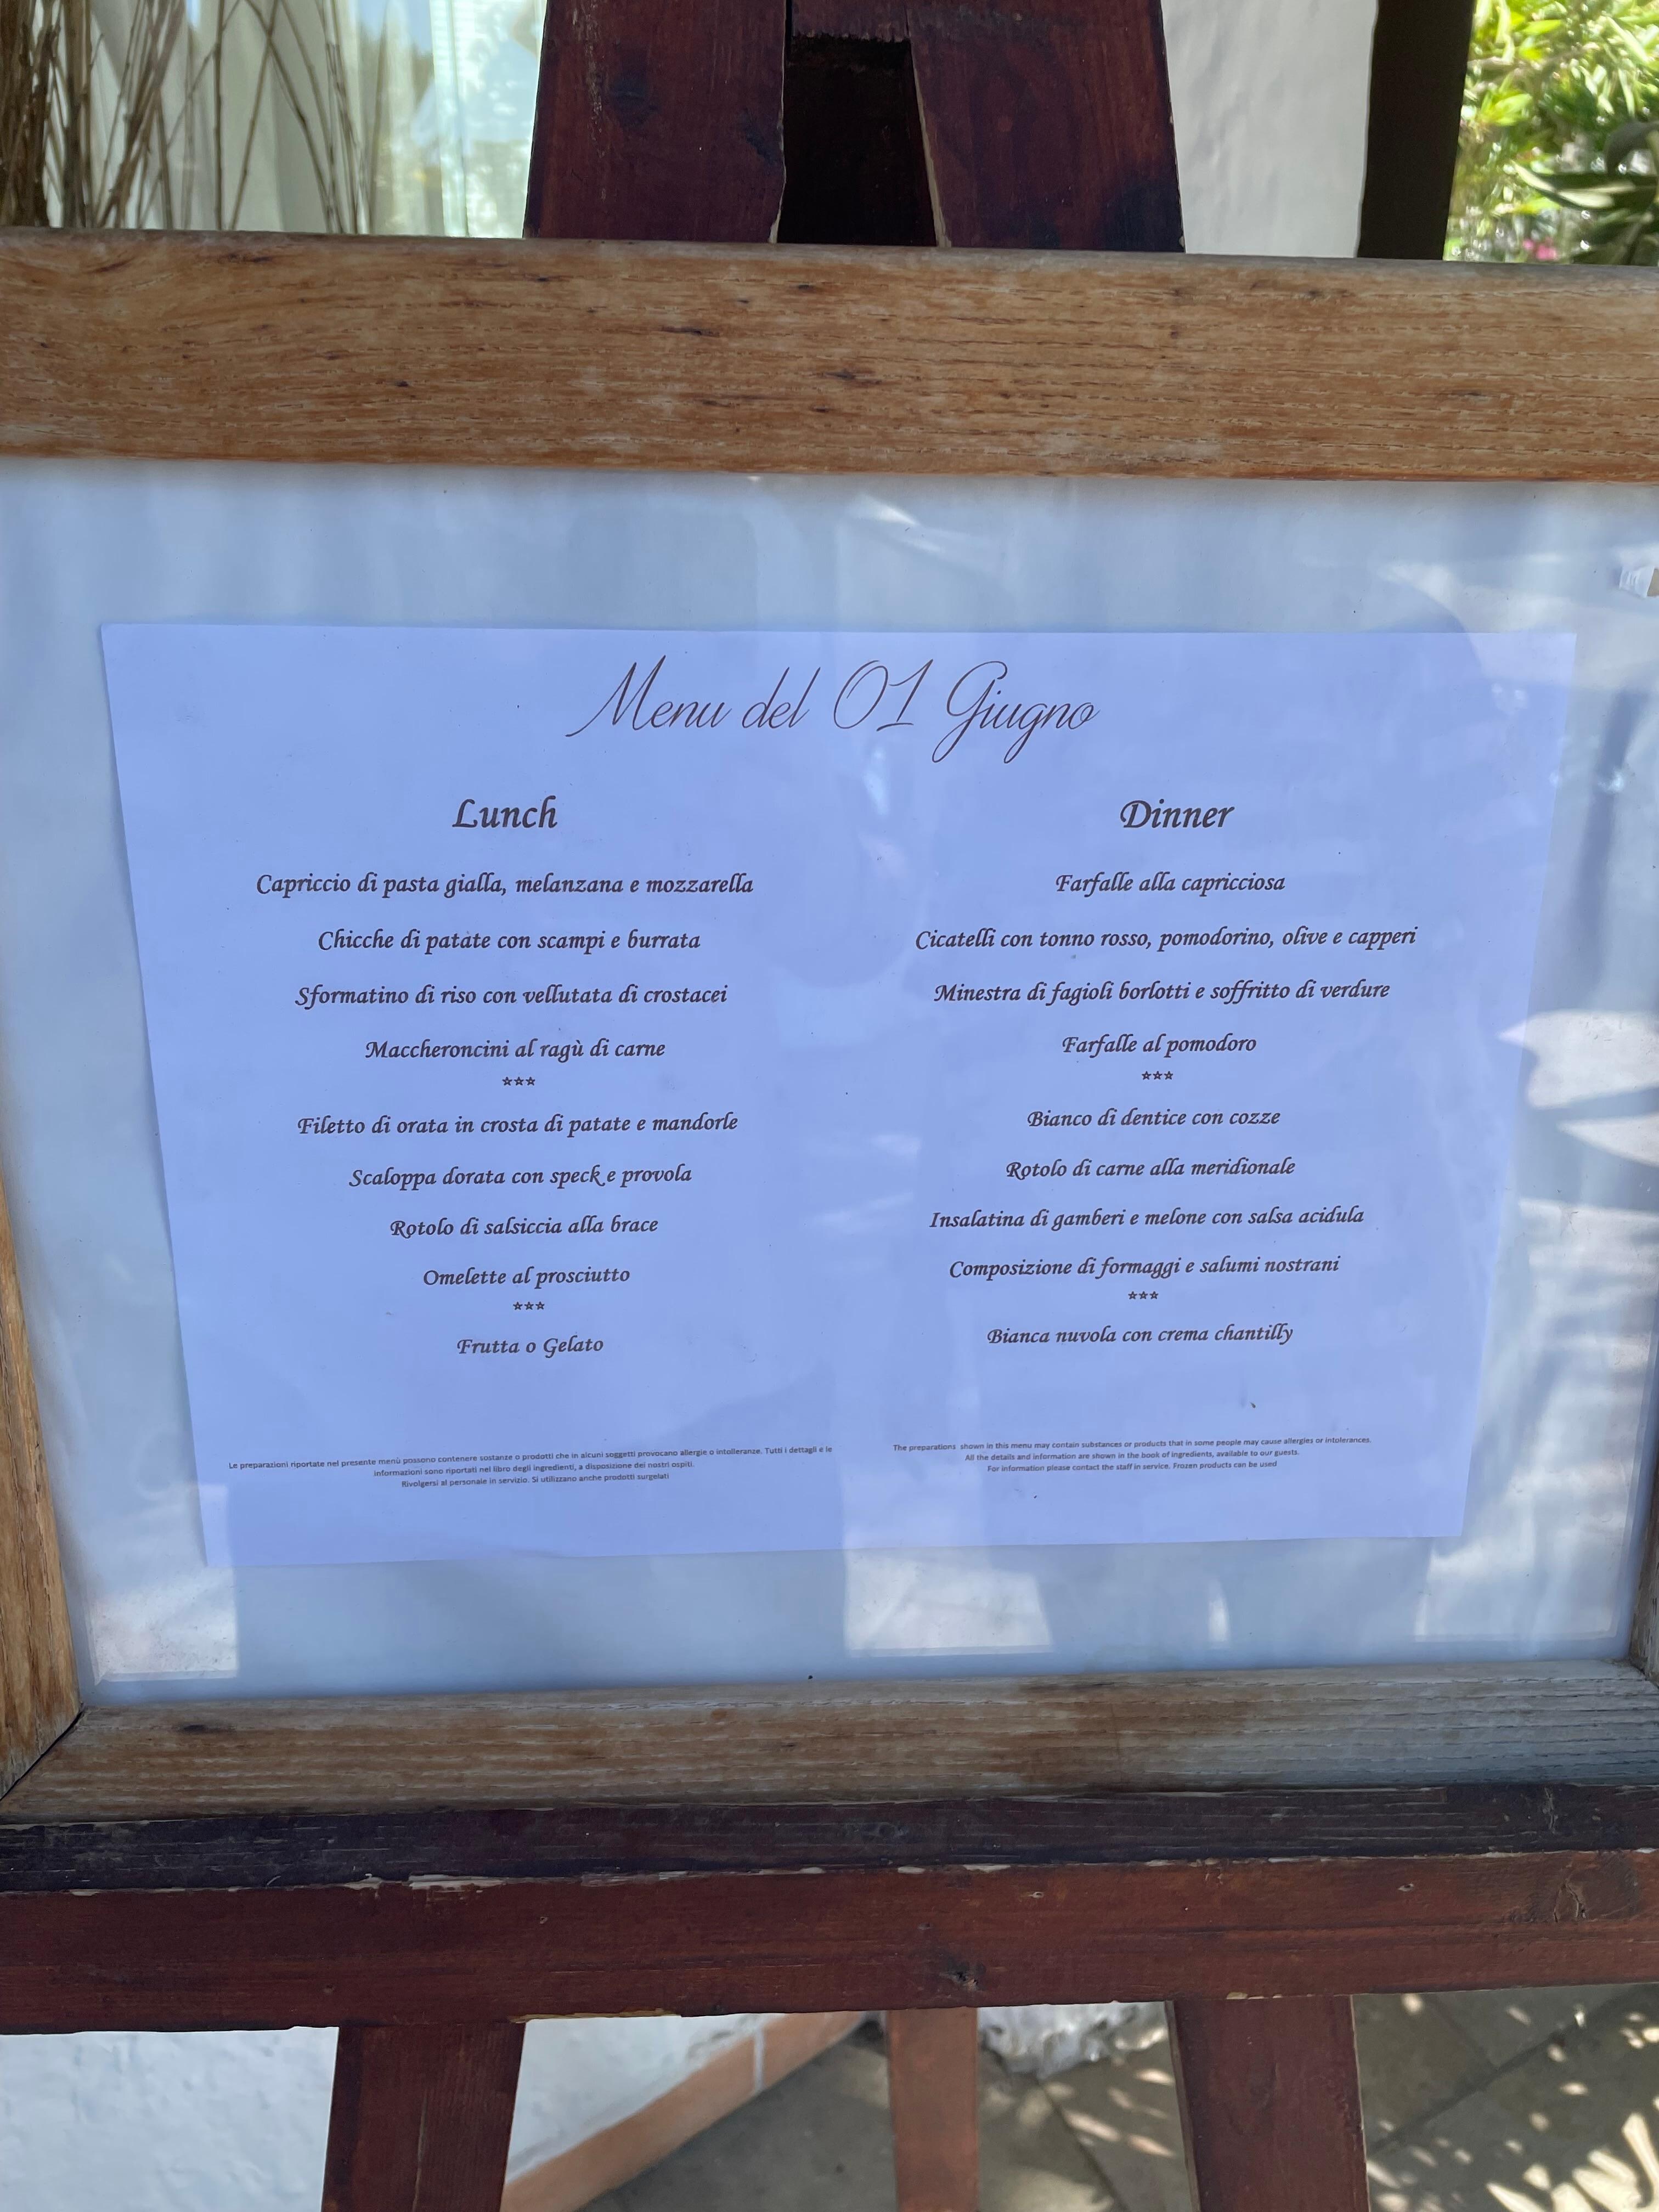 Menu del 01 Giugno
Lunch
Capriccio di pasta gialla, melanzana e mozzarella
Chicche di patate con scampi e burrata
Sformatino di riso con vellutata di crostacei
Maccheroncini al ragù di carne
***
Filetto di orata in crosta di patate e mandorle
Scaloppa dorata con speck e provola
Rotolo di salsiccia alla brace
Omelette al prosciutto
***
Frutta o Gelato
Le preparazioni riportate nel presente menù possono contenere sostanze o prodotti che in alcuni soggetti provocano allergie o intolleranze. Tutti i dettagli e le
informazioni sono riportati nel libro degli ingredienti, a disposizione dei nostri ospiti.
Rivolgersi al personale in servizio. Si utilizzano anche prodotti surgelati
Dinner
Farfalle alla capricciosa
Cicatelli con tonno rosso, pomodorino, olive e capperi
Minestra di fagioli borlotti e soffritto di verdure
Farfalle al pomodoro
***
Bianco di dentice con cozze
Rotolo di carne alla meridionale
Insalatina di gamberi e melone con salsa acidula
Composizione di formaggi e salumi nostrani
***
Bianca nuvola con crema chantilly
The preparations shown in this menu may contain substances or products that in some people may cause allergies or intolerances.
All the details and information are shown in the book of ingredients, available to our guests.
For information please contact the staff in service. Frozen products can be used